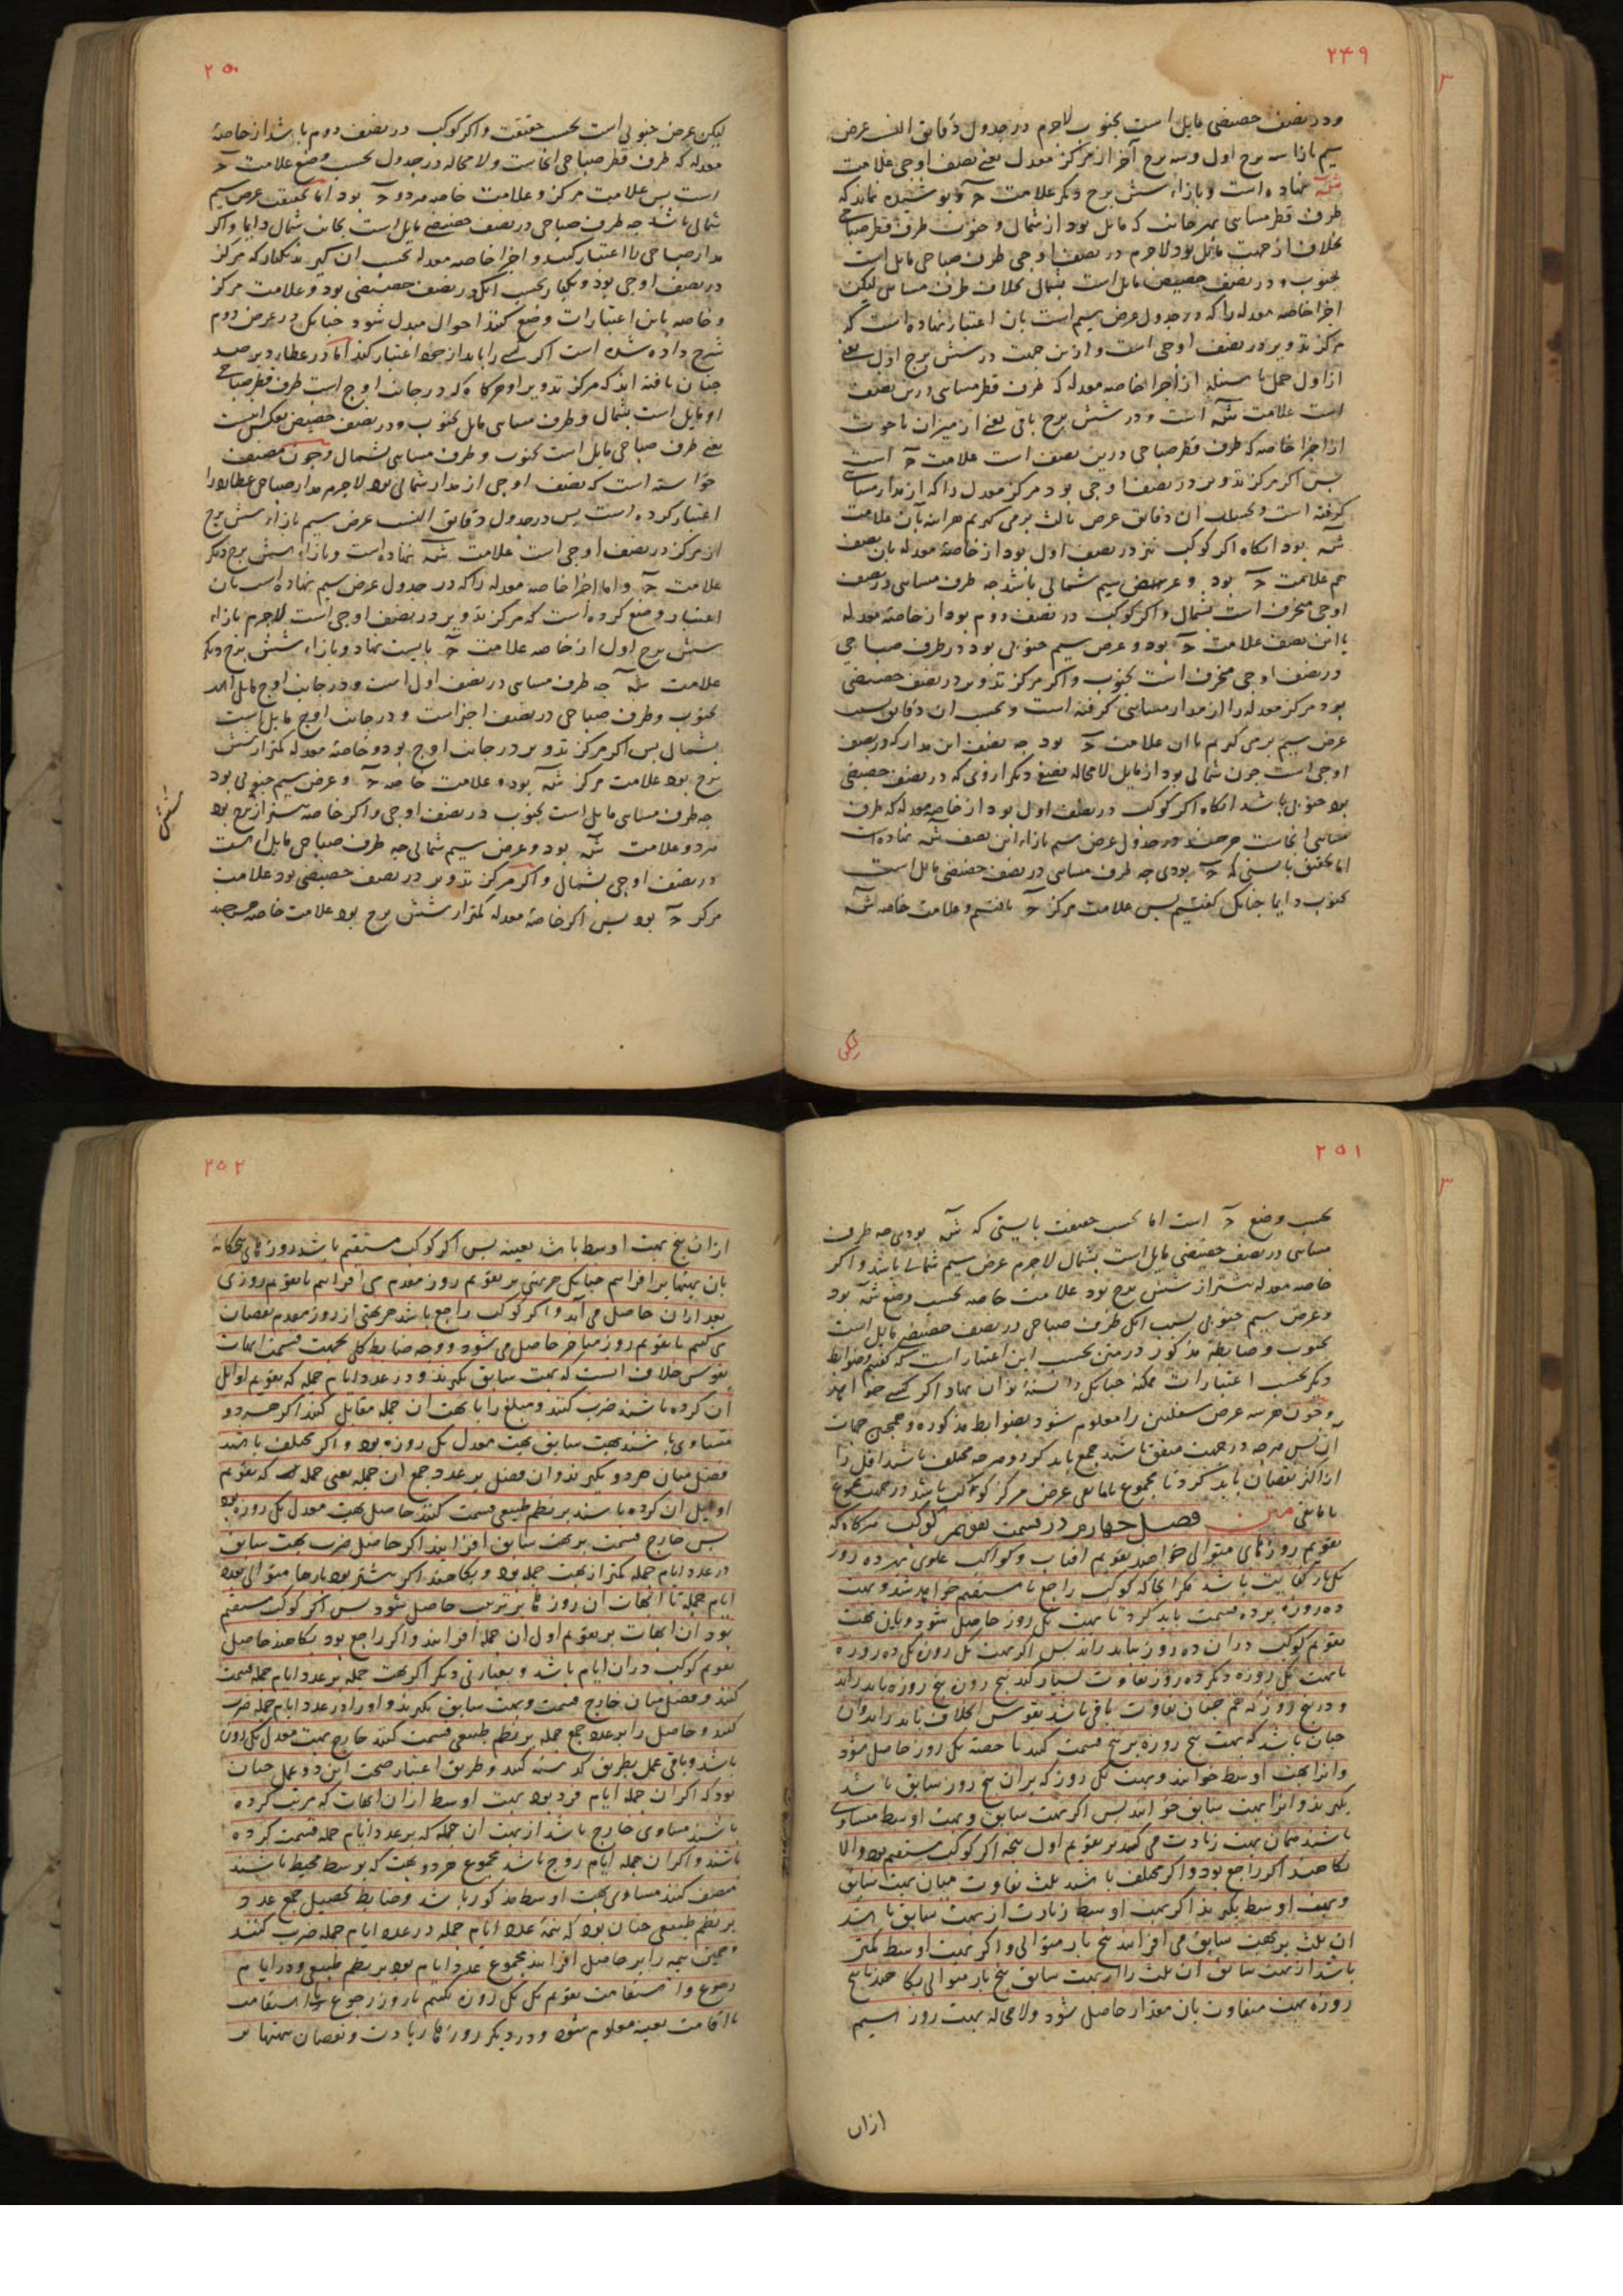 ۲۴۹
ودر نصف حضیضی مایل است بجنوب لاجرم در جدول دقایق الف عرض
سیم بازا سه برج اول وسه برج آخر از مرکز معدل یعنی نصف اوجی علامت
نهاده است وبازاء شش برج دیکر علامت وپوشیده نماند که
طرف قطر مسایی بهر جانب که مایل بود از شمال و جنوب طرف قطر صباحی
بخلاف ان جهت مایل بود لاجرم در نصف اوجی طرف صباحی مایل است
بجنوب ودر نصف حضیضی مایل است بشمال بخلاف طرف مسایی لیکن
اجزا خاصه معدله را که در جدول عرض سیم است بان اعتبار نهاده است که
مرکز تدویر در نصف اوجی است وازین جهت در شش برج اول یعنی
از اول حمل تا سنبله از اجزا خاصه معدله که طرف قطر مسایی درین نصف
است علامت است ودر شش برج باقی یعنی از میزان تا حوت
از اجزا خاصه که طرف قطر صباحی درین نصف است علامت است
پس اکر مرکز تدویر در نصف اوجی بود مرکز معدل را که از مدار مسایی
کرفته است وبحسب ان دقایق عرض ثالث برمی کیریم هراینه آن علامت
بود انکاه اکر کوکب نیز در نصف اول بود از خاصه معدله بان نصف
هم علامت بود و عرض سیم شمالی باشد چه طرف مسایی در نصف
اوجی منحرف است بشمال واکر کوکب در نصف دوم بود از خاصه معدله
با این نصف علامت بود و عرض سیم جنوبی بود ودر طرف صباحی
در نصف اوجی منحرف است بجنوب واکر مرکز تدویر در نصف حضیضی
بود مرکز معدله را از مدار مسایی کرفته است وبحسب ان دقایق
عرض سیم برمی کیریم با ان علامت بود چه نصف این مدار که در نصف
اوجی است چون شمالی بود از مایل لامحاله نصف دیکر ازوی که در نصف حضیضی
بود جنوبی باشد انکاه اکر کوکب در نصف اول بود از خاصه معدله که طرف
مسایی انجاست هرچند در جدول عرض سیم بازاء این نصف نهاده است
اما بحقیق بایستی که بودی چه طرف مسایی در نصف حضیضی مایل است
بجنوب دایما چنانک کفتیم پس علامت مرکز یافتیم و علامت خاصه
لیکن
۲۵۰
لیکن عرض جنوبی است بحسب حقیقت واکر کوکب در نصف دوم باشد از خاصه
معدله که طرف قطر صباحی انجاست ولامحاله در جدول بحسب وضع علامت
است پس علامت مرکز و علامت خاصه هر دو بود اما بحقیقت عرض سیم
شمالی باشد چه طرف صباحی در نصف حضیضی مایل است بجانب شمال دایما واکر
مدار صباحی را اعتبار کنند واجزا خاصه معدله بحسب ان کیرند یکبار که مرکز
در نصف اوجی بود ویکبار بحسب انک در نصف حضیضی بود وعلامت مرکز
وخاصه باین اعتبارات وضع کنند احوال مبدل شود چنانک در عرض دوم
شرح داده شده است اکر کسی را باید از خود اعتبار کند اما در عطارد برصد
چنان یافته اند که مرکز تدویر او هرکاه که در جانب اوج است طرف قطر صباحی
او مایل است بشمال وطرف مسایی مایل بجنوب ودر نصف حضیض بعکس است
یعنی طرف صباحی مایل است بجنوب وطرف مسایی بشمال وچون مصنف
خواسته است که نصف اوجی از مدار شمالی بود لاجرم مدار صباحی عطارد را
اعتبار کرده است پس در جدول دقایق الف عرض سیم بازاء شش برج
از مرکز در نصف اوجی است علامت نهاده است وبازاء شش برج دیکر
علامت واما اجزا خاصه معدله را که در جدول عرض سیم نهاده است بان
اعتبار وضع کرده است که مرکز تدویر در نصف اوجی است لاجرم بازاء
شش برج اول از خاصه علامت بایست نهاد وبازاء شش برج دیکر
علامت چه طرف مسایی در نصف اول است ودر جانب اوج مایل است
بجنوب وطرف صباحی در نصف اخر است ودر جانب اوج مایل است
بشمال پس اکر مرکز تدویر در جانب اوج بود وخاصه معدله کمتر از شش
برج بود علامت مرکز بوده علامت خاصه و عرض سیم جنوبی بود
چه طرف مسایی مایل است بجنوب در نصف اوجی واکر خاصه بیشتر از برج بود
شش
هر دو علامت بود وعرض سیم شمالی چه طرف صباحی مایل است
در نصف اوجی بشمال واکر مرکز تدویر در نصف حضیضی بود علامت
مرکز بود پس اکر خاصه معدله کمتر از شش برج بود علامت خاصه هرچند
۲۵۱
بحسب وضع است اما بحسب حقیقت بایستی که بودی چه طرف
مسایی در نصف حضیضی مایل است بشمال لاجرم عرض سیم شمالی باشد واکر
خاصه معدله بیشتر از شش برج بود علامت خاصه بحسب وضع بود
وعرض سیم جنوبی بسبب انک طرف صباحی در نصف حضیضی مایل است
بجنوب وضابطه مذکور در متن بحسب این اعتبار است که کفتیم وضوابط
دیکر بحسب اعتبارات ممکنه چنانک دانسته توان نهاد اکر کسی خواهد
وچون هر سه عرض سفلیین را معلوم شود بضوابط مذکوره وهمچنین جهات
آن پس هرچه در جهت متفق باشد جمع باید کرد وهرچه مختلف باشد اقل را
از اکثر نقصان باید کرد تا مجموع یا مابقی عرض مرکز کوکب باشد در جهت مجموع
یا مابقی متن فصل چهارم در قسمت تقویم کوکب هرکاه که
تقویم روزهای متوالی خواهند تقویم افتاب وکواکب علوی بهر ده روز
یکبار کفایت باشد مکر انجا که کوکب راجع یا مستقیم خواهد شد وبهت
ده روزه بر ده قسمت باید کرد تا بهت یک روز حاصل شود وباین بهت
تقویم کوکب دران ده روز بباید راند پس اکر بهت یک روزه یک ده روزه
با بهت یک روزه دیکر ده روز تفاوت بسیار کند پنج روزه پنج روزه باید راند
ودر پنج روز که هم چنان تفاوت باقی باشد بقوس اختلاف باید راند وان
چنان باشد که بهت پنج روزه بر پنج قسمت کنند تا حصه یک روز حاصل شود
وانرا بهت اوسط خوانند وبهت یک روز که بران پنج روز سابق باشد
بکیرند وانرا بهت سابق خوانند پس اکر بهت سابق وبهت اوسط مساوی
باشند همان بهت زیادت می کنند بر تقویم اول پنجه اکر کوکب مستقیم بود والا
بکاهند اکر راجع بود واکر مختلف باشند ثلث تفاوت میان بهت سابق
وبهت اوسط بکیرند اکر بهت اوسط زیادت از بهت سابق باشد
ان ثلث بر بهت سابق می افزایند پنج بار متوالی واکر بهت اوسط کمتر
باشد از بهت سابق ان ثلث را از بهت سابق پنج بار متوالی بکاهند تا پنج
روزه بهت متفاوت بان مقدار حاصل شود ولامحاله بهت روز سیم
ازان
۲۵۲
ازان پنج بهت اوسط باشد بعینه پس اکر کوکب مستقیم باشد روزهای پنجکانه
بان بهتها بر افزاییم چنانک هر بهتی بر تقویم روز مقدم می افزاییم تا تقویم روزی
بعد ازان حاصل می آید واکر کوکب راجع باشد هر بهتی از روز مقدم نقصان
می کنیم تا تقویم روز متاخر حاصل می شود ووجه ضابط کلی بجهت قسمت ابهات
بقوس خلاف انست که بهت سابق بکیرند ودر عدد ایام جمله که تقویم اوایل
ان کرده باشند ضرب کنند ومبلغ را با بهت ان جمله مقابل کنند اکر هر دو
متساوی باشند بهت سابق بهت معدل یک روزه بود واکر مختلف باشند
فضل میان هر دو بکیرند وان فضل بر عدد جمع ان جمله یعنی جمله که تقویم
اوایل ان کرده باشند بر نظم طبیعی قسمت کنند حاصل بهت معدل یک روزه بود
پس خارج قسمت بر بهت سابق افزایند اکر حاصل ضرب بهت سابق
در عدد ایام جمله کمتر از بهت جمله بود وبکاهند اکر بیشتر بود بارها متوالی بعدد
ایام جمله تا ابهات ان روزها بر ترتیب حاصل شود پس اکر کوکب مستقیم
بود ان ابهات بر تقویم اول ان جمله افزایند واکر راجع بود بکاهند حاصل
تقویم کوکب دران ایام باشد وبعبارتی دیکر اکر بهت جمله بر عدد ایام جمله قسمت
کنند وفضل میان خارج قسمت وبهت سابق بکیرند واورا در عدد ایام جمله ضرب
کنند وحاصل را بر عدد جمع جمله بر نظم طبیعی قسمت کنند خارج بهت معدل یک روزه
باشد وباقی عمل بطریق کذشته کنند وطریق اعتبار صحت این دو عمل چنان
بود که اکر ان جمله ایام فرد بود بهت اوسط ازان ابهات که مرتب کرده
باشند مساوی خارج باشد از بهت ان جمله که بر عدد ایام جمله قسمت کرده
باشند واکر ان جمله ایام زوج باشد مجموع هر دو بهت که بوسط محیط باشند
منصف کنند مساوی بهت اوسط مذکور باشد وضابط تحصیل جمع عدد
بر نظم طبیعی چنان بود که نیمه عدد ایام جمله در عدد ایام جمله ضرب کنند
وهمین نیمه را بر حاصل افزایند مجموع عدد ایام بود بر نظم طبیعی ودر ایام
رجوع واستقامت تقویم یک یک روزه بکنیم تا روز رجوع یا استقامت
یا اقامت بعینه معلوم شود ودر دیکر روزها زیادت ونقصان بهتها بر